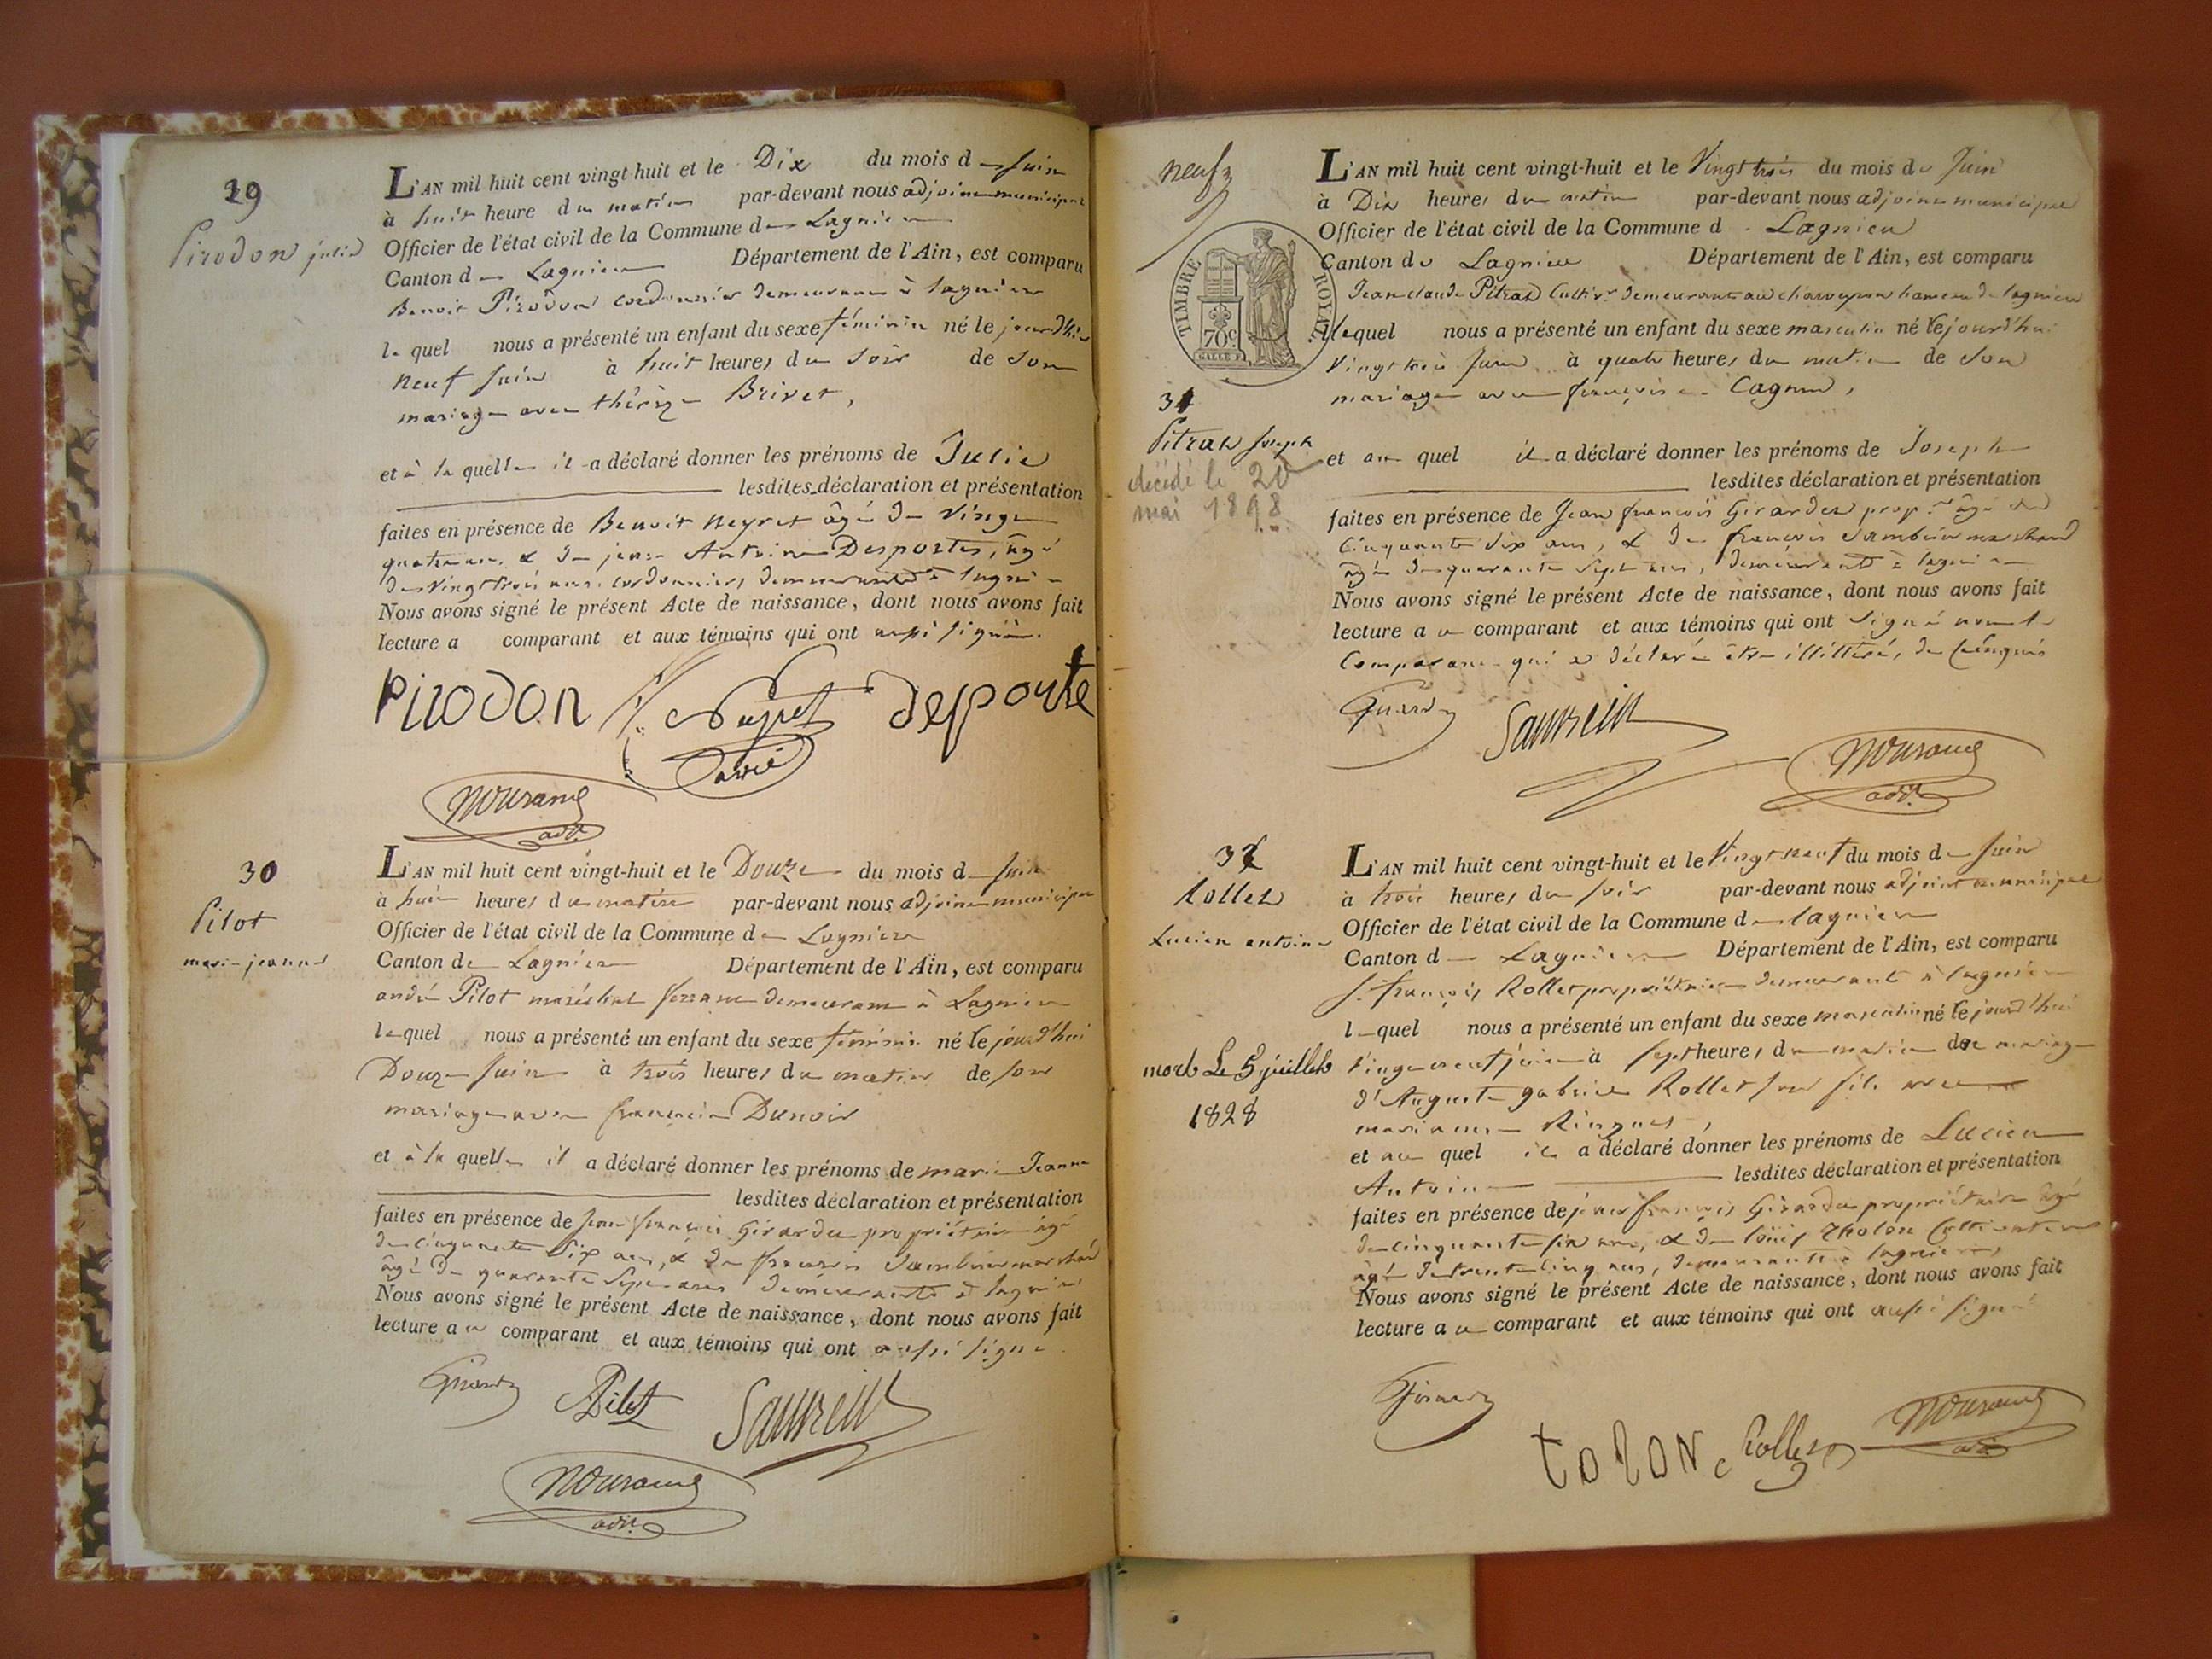 29
Pirodon julie
L'AN mil huit cent vingt-huit et le Dix du mois de juin
à huit heure du matin par-devant nous adjoint municipal
Officier de l'état civil de la Commune de Lagnieu
Canton de Lagnieu Département de l'Ain, est comparu
Benoit Pirodon cordonnier demeurant à lagnieu
le quel nous a présenté un enfant du sexe féminin né le jourd'hier
neuf juin à huit heures du soir de son
mariage avec thérèze Brivet,
et à la quelle il a déclaré donner les prénoms de Julie
lesdites déclaration et présentation
faites en présence de Benoit Neyret âgé de vingt
quatre ans, & de jean Antoine Desportes, âgé
de vingt trois ans, cordonniers, demeurants à lagnieu
Nous avons signé le présent Acte de naissance, dont nous avons fait
lecture a comparant et aux témoins qui ont aussi signés.
Pirodon Neyret desporte
adj.t
30
Pilot
marie-jeanne
L'AN mil huit cent vingt-huit et le Douze du mois de juin
à huit heures du matin par-devant nous adjoint municipal
Officier de l'état civil de la Commune de Lagnieu
Canton de Lagnieu Département de l'Ain, est comparu
andré Pilot maréchal ferrant demeurant à Lagnieu
lequel nous a présenté un enfant du sexe féminin né le jourd'hui
Douze juin à trois heures du matin de son
mariage avec françoise Dunoir
et à la quelle il a déclaré donner les prénoms de marie Jeanne
lesdites déclaration et présentation
faites en présence de Jean françois Girardu propriétaire âgé
de cinquante six ans, & de françois marchand
âgé de quarante sept ans demeurants à lagnieu
Nous avons signé le présent Acte de naissance, dont nous avons fait
lecture au comparant et aux témoins qui ont aussi signé.
Pilot
adj.t
neuf
TIMBRE ROYAL
70c
31
Pitrat Joseph
décédé le 20
mai 1898
L'AN mil huit cent vingt-huit et le Vingt trois du mois de Juin
à Dix heures du matin par-devant nous adjoint municipal
Officier de l'état civil de la Commune de Lagnieu
Canton de Lagnieu Département de l'Ain, est comparu
Jean claude Pitrat Cultivr demeurant au hameau de lagnieu
lequel nous a présenté un enfant du sexe masculin né le jourd'hui
vingt trois juin à quatre heures du matin de son
mariage avec françoise Cagnin,
et au quel il a déclaré donner les prénoms de Joseph
lesdites déclaration et présentation
faites en présence de Jean françois Girardu propre âgé de
cinquante six ans, & de françois marchand
âgé de quarante sept ans, demeurants à lagnieu
Nous avons signé le présent Acte de naissance, dont nous avons fait
lecture au comparant et aux témoins qui ont signé non le
comparant qui a déclaré être illittéré, de ce enquis
adj.t
32
Rollet
Lucien antoine
mort Le 5 juillet
1828
L'AN mil huit cent vingt-huit et le Vingt neuf du mois de juin
à trois heures du soir par-devant nous adjoint municipal
Officier de l'état civil de la Commune de lagnieu
Canton de Lagnieu Département de l'Ain, est comparu
françois Rollet propriétaire demeurant à lagnieu
lequel nous a présenté un enfant du sexe masculin né le jourd'hui
vingt neuf juin à sept heures du matin de mariage
d'Auguste gabriel Rollet son fils avec
et au quel il a déclaré donner les prénoms de Lucien
Antoine lesdites déclaration et présentation
faites en présence de jean françois Girardu propriétaire âgé
de cinquante six ans, & de louis Tholon Cultivateur
âgé de trente cinq ans, demeurants à lagnieu,
Nous avons signé le présent Acte de naissance, dont nous avons fait
lecture au comparant et aux témoins qui ont aussi signé
tolon Rollet
adj.t